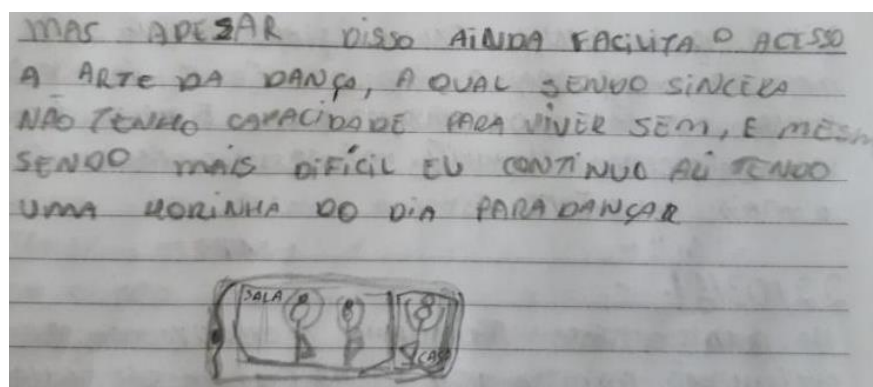 MAS APESAR DISSO AINDA FACILITA O ACESSO
A ARTE DA DANÇA, A QUAL SENDO SINCERA
NÃO TENHO CAPACIDADE PARA VIVER SEM, E MESM
SENDO MAIS DIFÍCIL EU CONTINUO ALI TENDO
UMA HORINHA DO DIA PARA DANÇAR
SALA
CASA